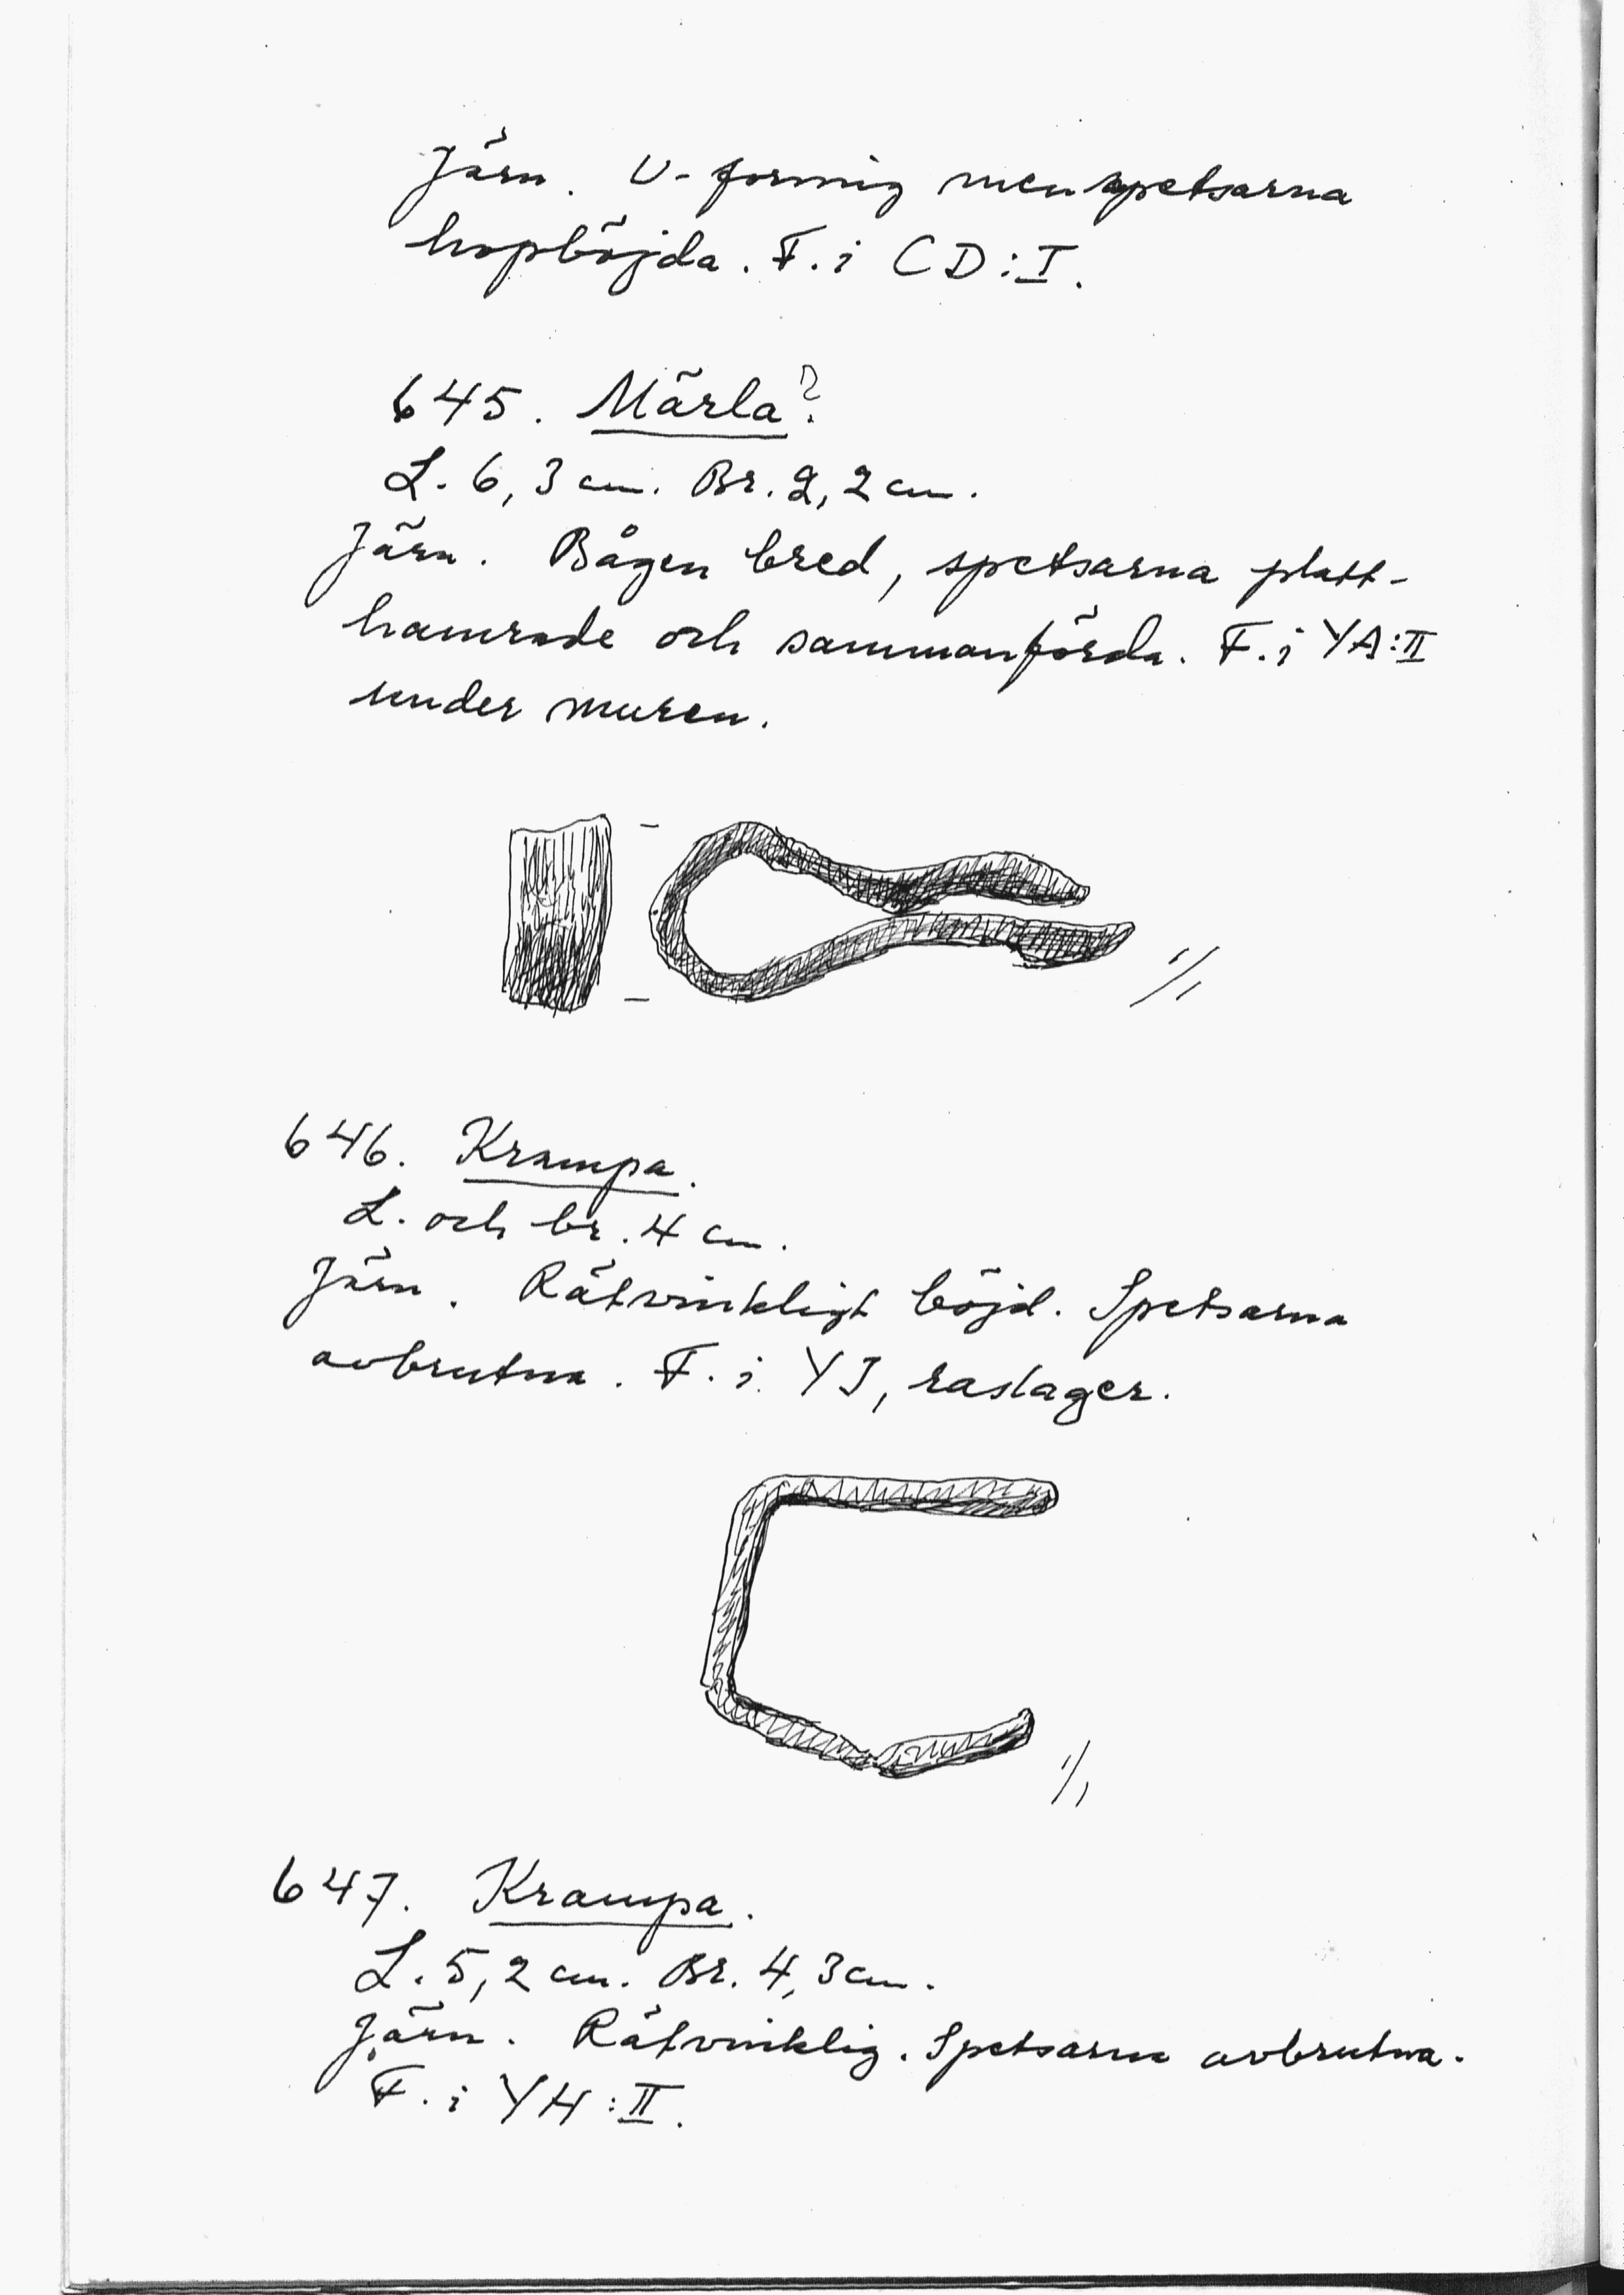 Järn. U-formig men spetsarna
hopböjda. F. i CD:I.
645. Märla?
L. 6,3 cm. Br. 2,2 cm.
Järn. Bågen bred, spetsarna platt-
hamrade och sammanförda. F. i YA:II
under muren.
1/1
646. Krampa.
L. och br. 4 cm.
Järn. Rätvinkligt böjd. Spetsarna
avbrutna. F. i YJ, raslager.
1/1
647. Krampa.
L. 5,2 cm. Br. 4,3 cm.
Järn. Rätvinklig. Spetsarna avbrutna.
F. i YH:II.